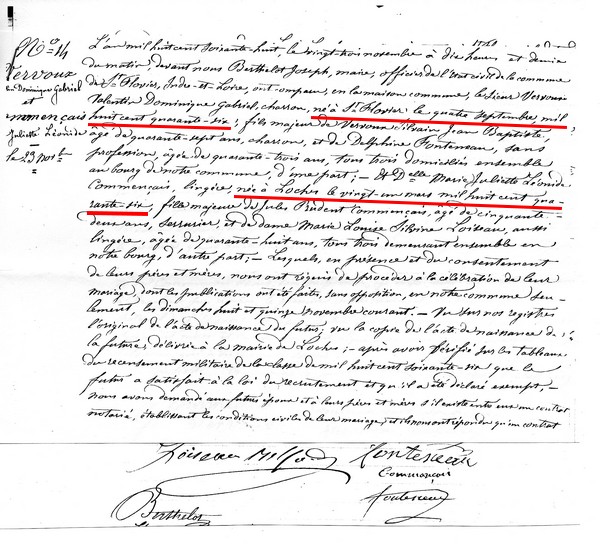 N° 14
Vervoux
Dominique Gabriel
et
Commençais
Juliette Léonide
Le 23 9bre
L'an mil huit cent soixante-huit, le vingt-trois novembre à dix heures et demie
du matin, devant nous Berthelot Joseph, maire, officier de l'état civil de la commune
de St Flovier, Indre-et-Loire, ont comparu, en la maison commune, le Sieur Vervoux
Valentin Dominique Gabriel, charron, né à St Flovier le quatre septembre mil
huit cent quarante-six ; fils majeur de Vervoux Silvain Jean Baptiste,
âgé de quarante-sept ans, charron, et de Delphine Fonteneau, sans
profession, agée de quarante-trois ans, tous trois domiciliés ensemble
au bourg de notre commune, d'une part ; — Et Delle Marie Juliette Léonide
Commençais, lingère, née à Loches le vingt-un mars mil huit cent qua-
rante-six, fille majeure de Jules Prudent Commençais, agé de cinquante-
deux ans, serrurier, et de dame Marie Louise Silvine Loiseau, aussi
lingère, agée de quarante-huit ans, tous trois demeurant ensemble en
notre bourg, d'autre part ; — Lesquels, en présence et du consentement
de leurs pères et mères, nous ont requis de procéder à la célébration de leur
mariage, dont les publications ont été faites, sans opposition, en notre commune seu-
lement, les dimanches huit et quinze novembre courant. — Vu sur nos registres
l'original de l'acte de naissance du futur, vu la copie de l'acte de naissance de
la future, délivrée à la mairie de Loches ; — après avoir vérifié sur les tableaux
du recensement militaire de la classe de mil huit cent soixante-six que le
futur a satisfait à la loi du recrutement et qu'il a été déclaré exempt, —
nous avons demandé aux futurs époux et à leurs pères et mères s'il existe entre eux un contrat
notarié, établissant les conditions civiles de leur mariage ; et ils nous ont répondu qu'un contrat
Loiseau
Fonteneau
Commençais
Berthelot